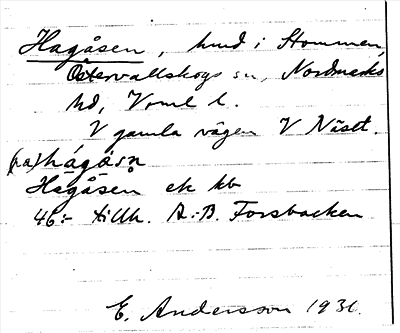 Hagåsen, hmd i Stommen,
Östervallskogs sn, Nordmarks
hd, Vrml l.
V gamla vägen V Näset.
(na) hágåsn
Hagåsen ek kb
46:- tillh. A.-B. Forsbacken
E. Andersson 1931.